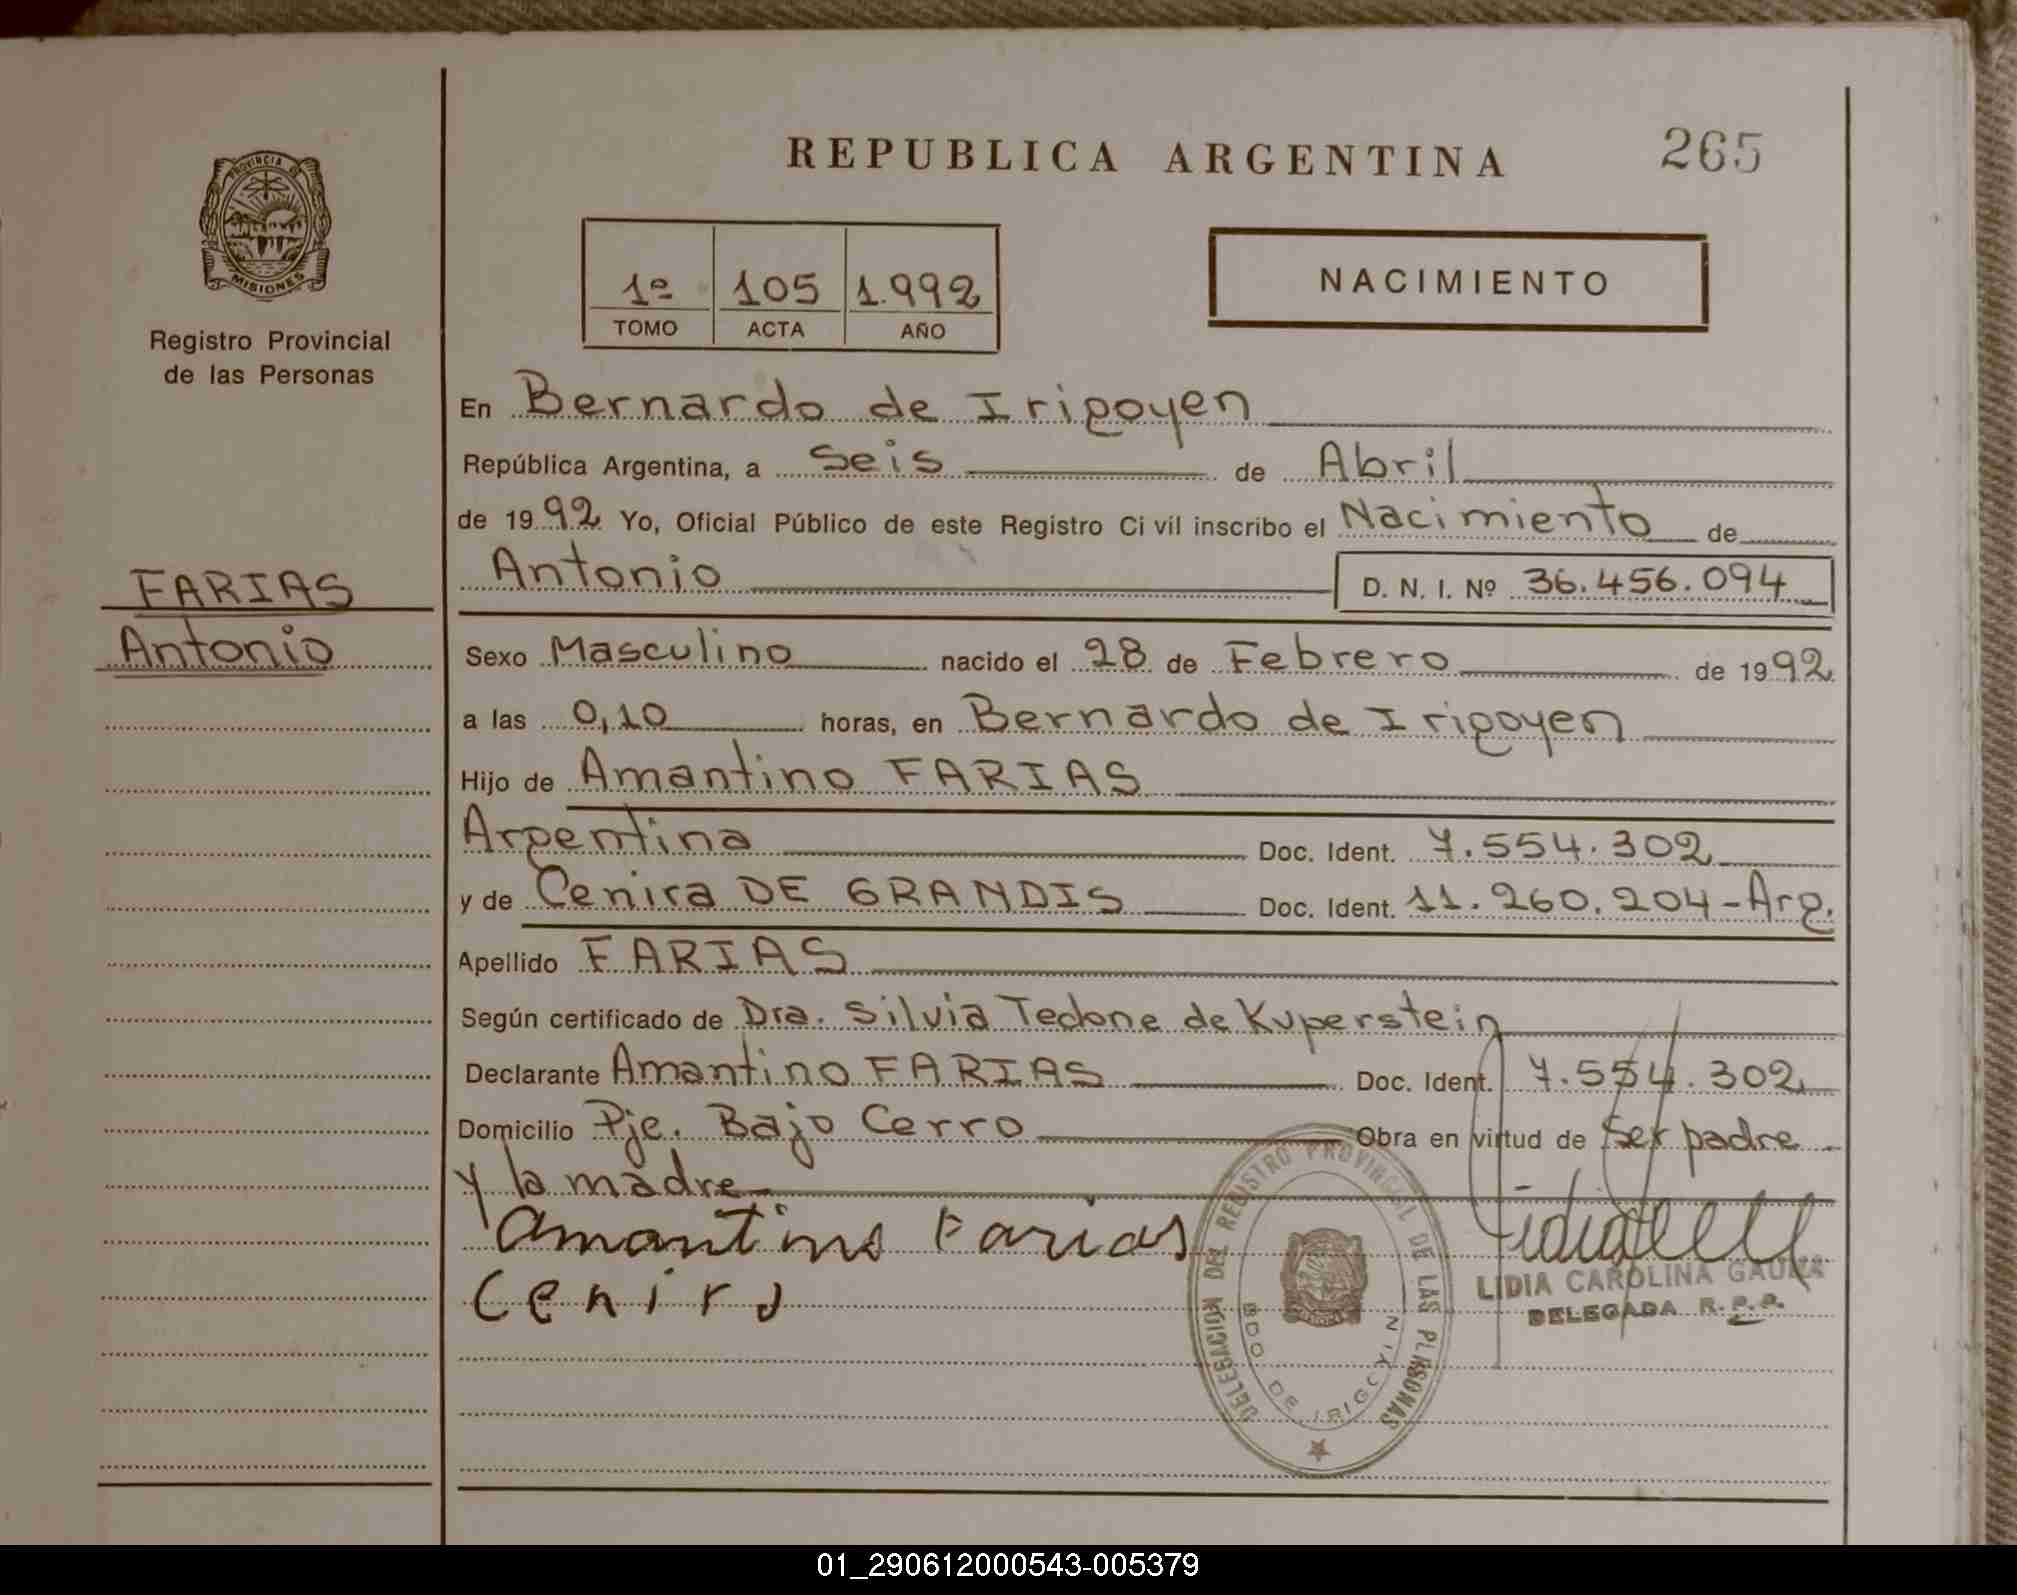 REPUBLICA ARGENTINA
265
PROVINCIA DE
MISIONES
Registro Provincial
de las Personas
1º 105 1.992
TOMO ACTA AÑO
NACIMIENTO
En Bernardo de Irigoyen
República Argentina, a Seis de Abril
de 1992 Yo, Oficial Público de este Registro Civil inscribo el Nacimiento de
Antonio D. N. I. Nº 36.456.094
FARIAS
Antonio
Sexo Masculino nacido el 28 de Febrero de 1992
a las 0,10 horas, en Bernardo de Irigoyen
Hijo de Amantino FARIAS
Argentina Doc. Ident. 7.554.302
y de Cenira DE GRANDIS Doc. Ident. 11.260.204-Arg.
Apellido FARIAS
Según certificado de Dra. Silvia Tedone de Kuperstein
Declarante Amantino FARIAS Doc. Ident. 7.554.302
Domicilio Pje. Bajo Cerro Obra en virtud de Ser padre
y la madre
Amantino Farias
Cenira
DELEGACION DEL REGISTRO PROVINCIAL DE LAS PERSONAS
BDO DE IRIGOYEN
LIDIA CAROLINA GAUNA
DELEGADA R.P.P.
01_290612000543-005379